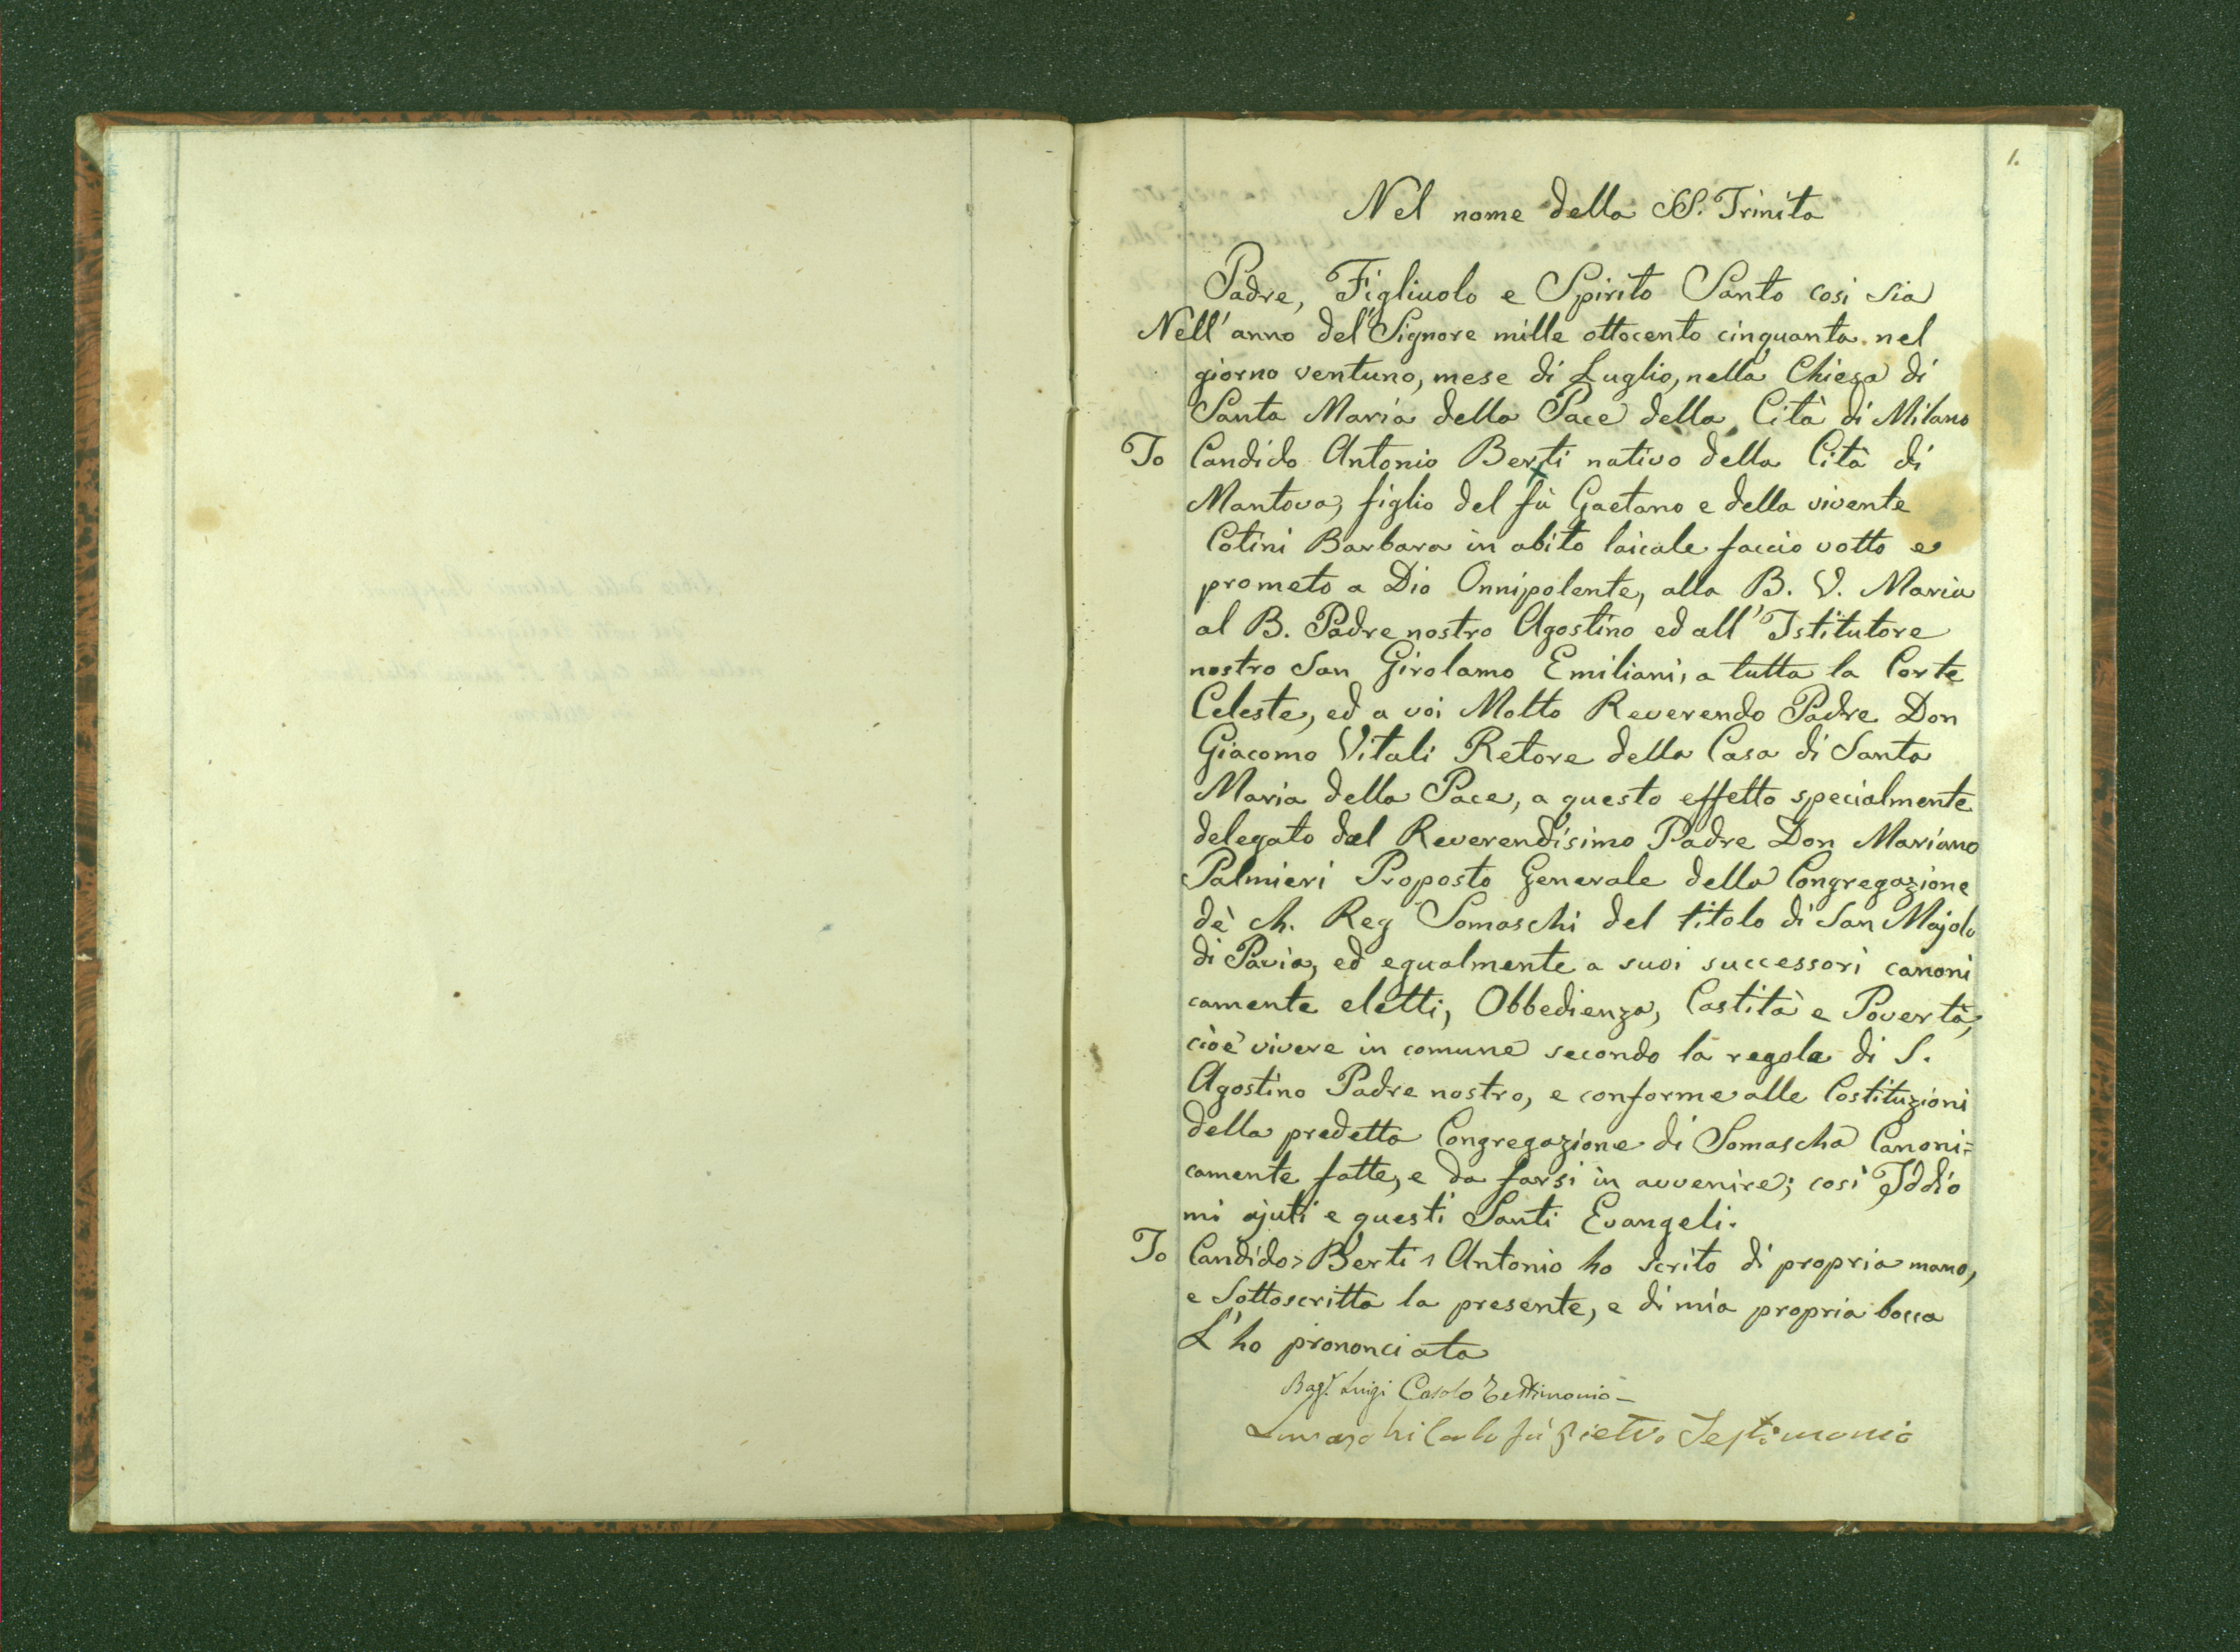 1.
Nel nome della SS. Trinita
Padre, Figliuolo e Spirito Santo cosi sia
Nell' anno del Signore mille ottocento cinquanta nel
giorno ventuno, mese di Luglio, nella Chiesa di
Santa Maria della Pace della Cità di Milano
Io Candido Antonio Berti nativo della Cità di
Mantova, figlio del fù Gaetano e della vivente
Cotini Barbara in abito laicale faccio votto e
prometo a Dio Onnipolente, alla B. V. Maria
al B. Padre nostro Agostino ed all' Istitutore
nostro San Girolamo Emiliani, a tutta la Corte
Celeste, ed a voi Molto Reverendo Padre Don
Giacomo Vitali Retore della Casa di Santa
Maria della Pace, a questo effetto specialmente
delegato dal Reverendisimo Padre Don Mariano
Palmieri Proposto Generale della Congregazione
dè Ch. Reg Somaschi del titolo di San Majolo
di Pavia, ed egualmente a suoi successori canoni
camente eletti, Obbedienza, Castità e Povertà,
cioè vivere in comune secondo la regola di S.
Agostino Padre nostro, e conforme alle Costituzioni
della predetta Congregazione di Somascha Canoni=
camente fatte, e da farsi in avvenire; così Iddio
mi ajuti e questi Santi Evangeli.
Io Candido Berti Antonio ho scrito di propria mano,
e Sottoscritta la presente, e di mia propria bocca
L' ho prononciata
Luigi Casolo Testimonio
fù Pietro Testimonio